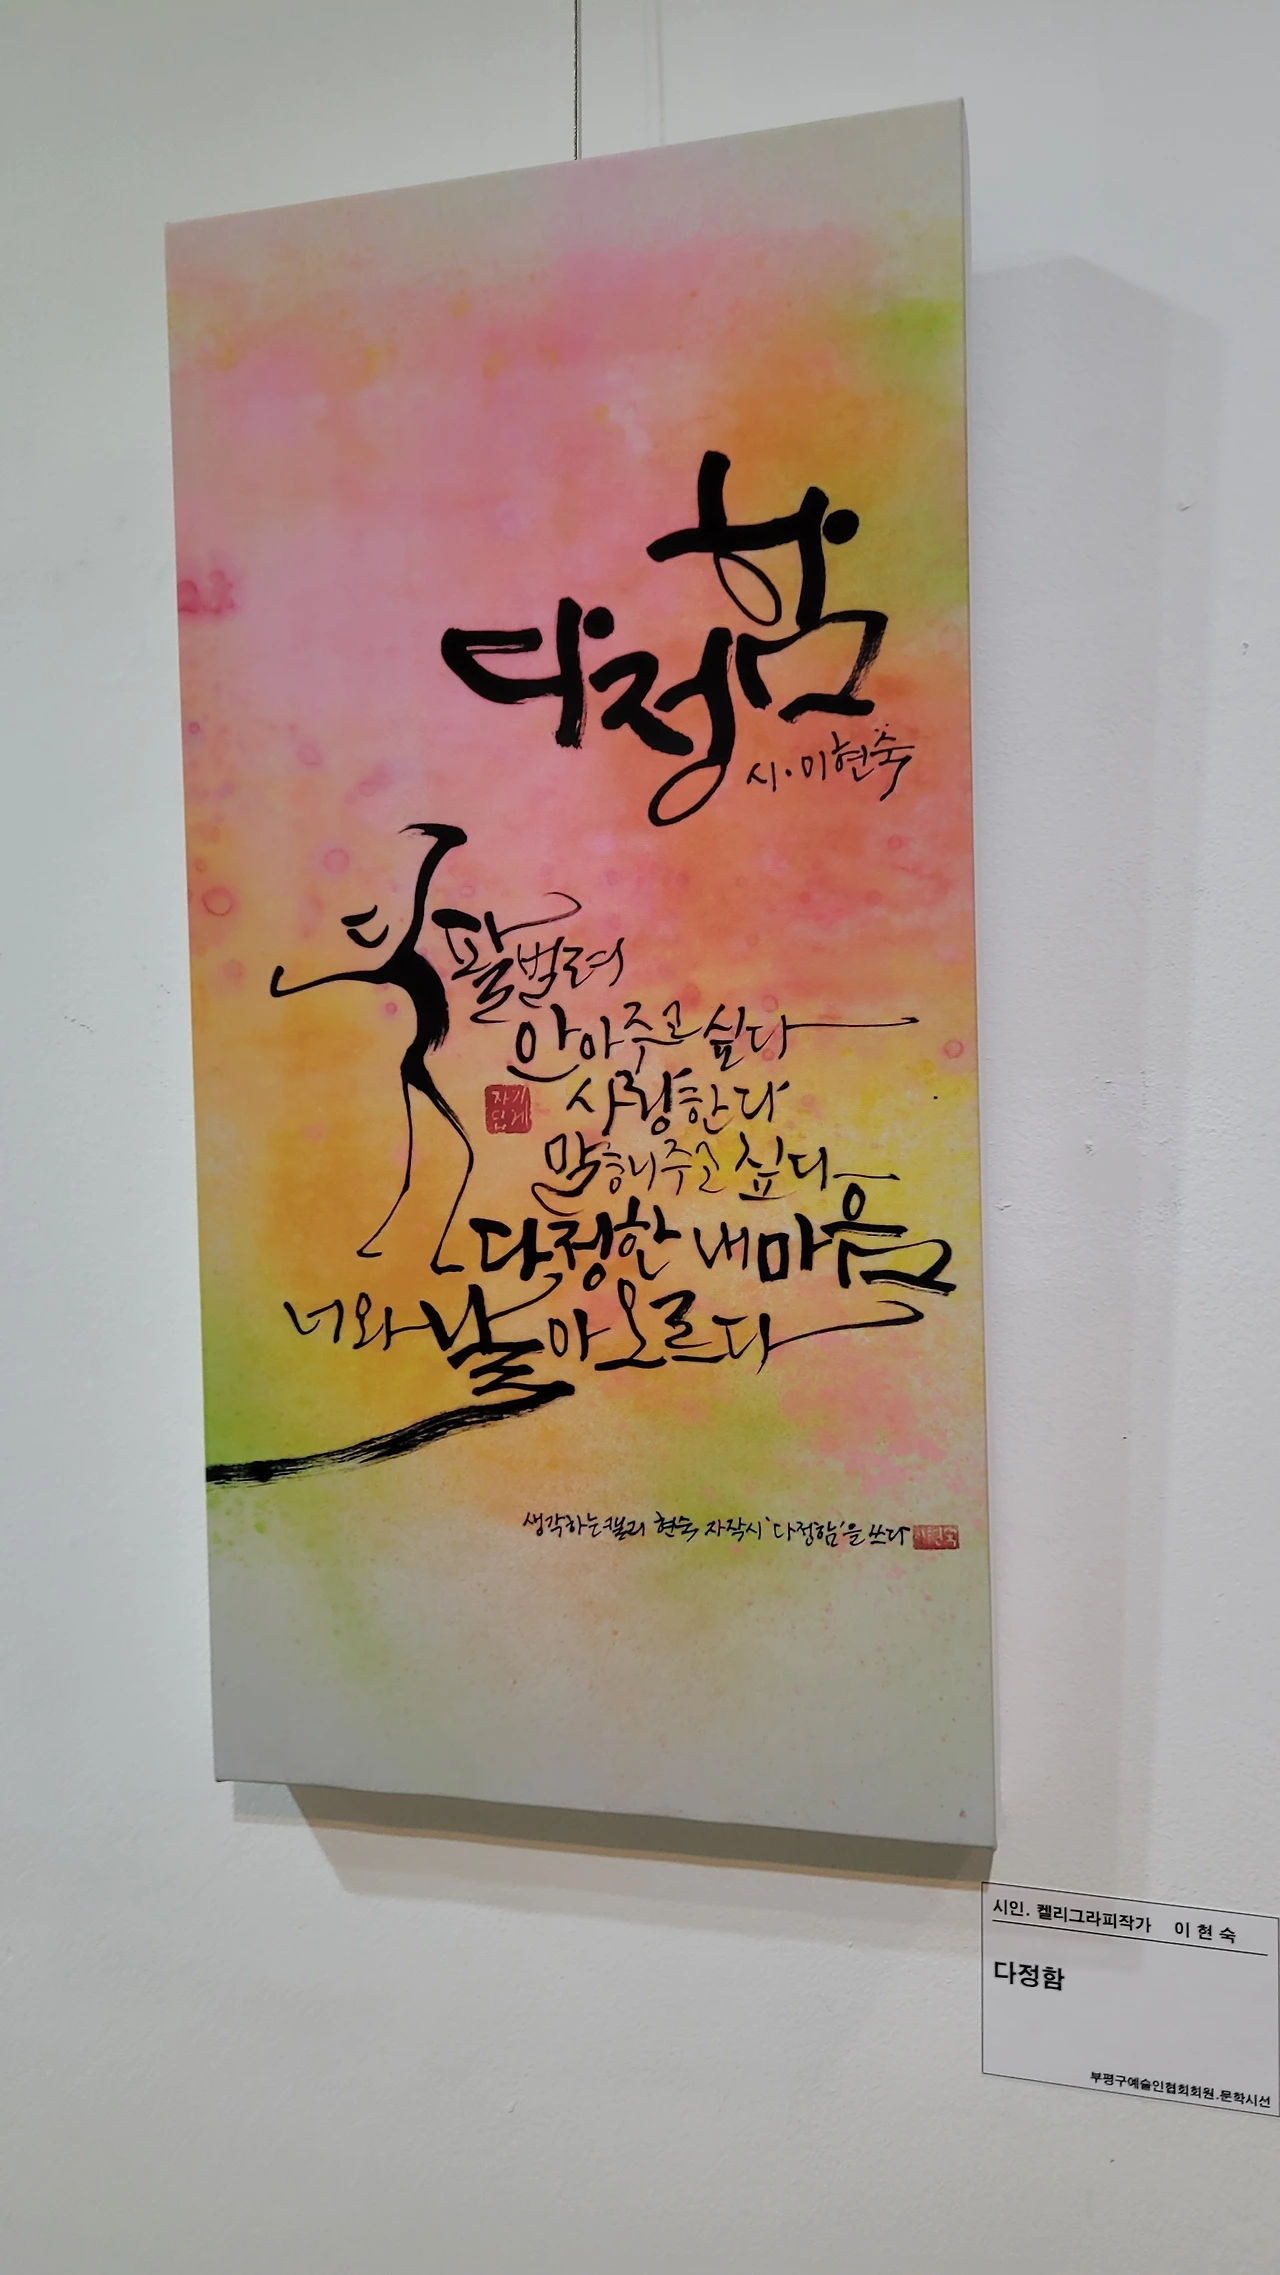 다정함
시·이현숙
두팔벌려
안아주고싶다
사랑한다
말해주고싶다
다정한 내마음
너와 날아오르다
자기
답게
생각하는캘리 현숙 자작시 '다정함'을 쓰다
이현숙
시인. 켈리그라피작가 이 현 숙
다정함
부평구예술인협회회원.문학시선